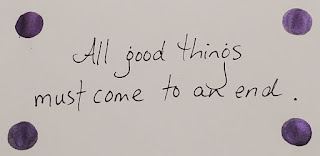 All good things
must come to an end.